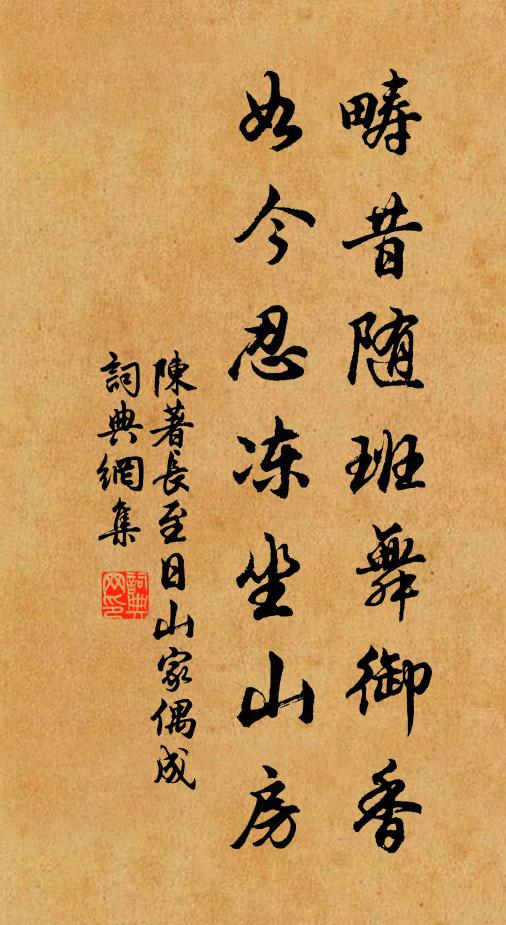 畴昔随班舞御香
如今忍冻坐山房
陳著長至日山家偶成
詞典網集
詞典网印